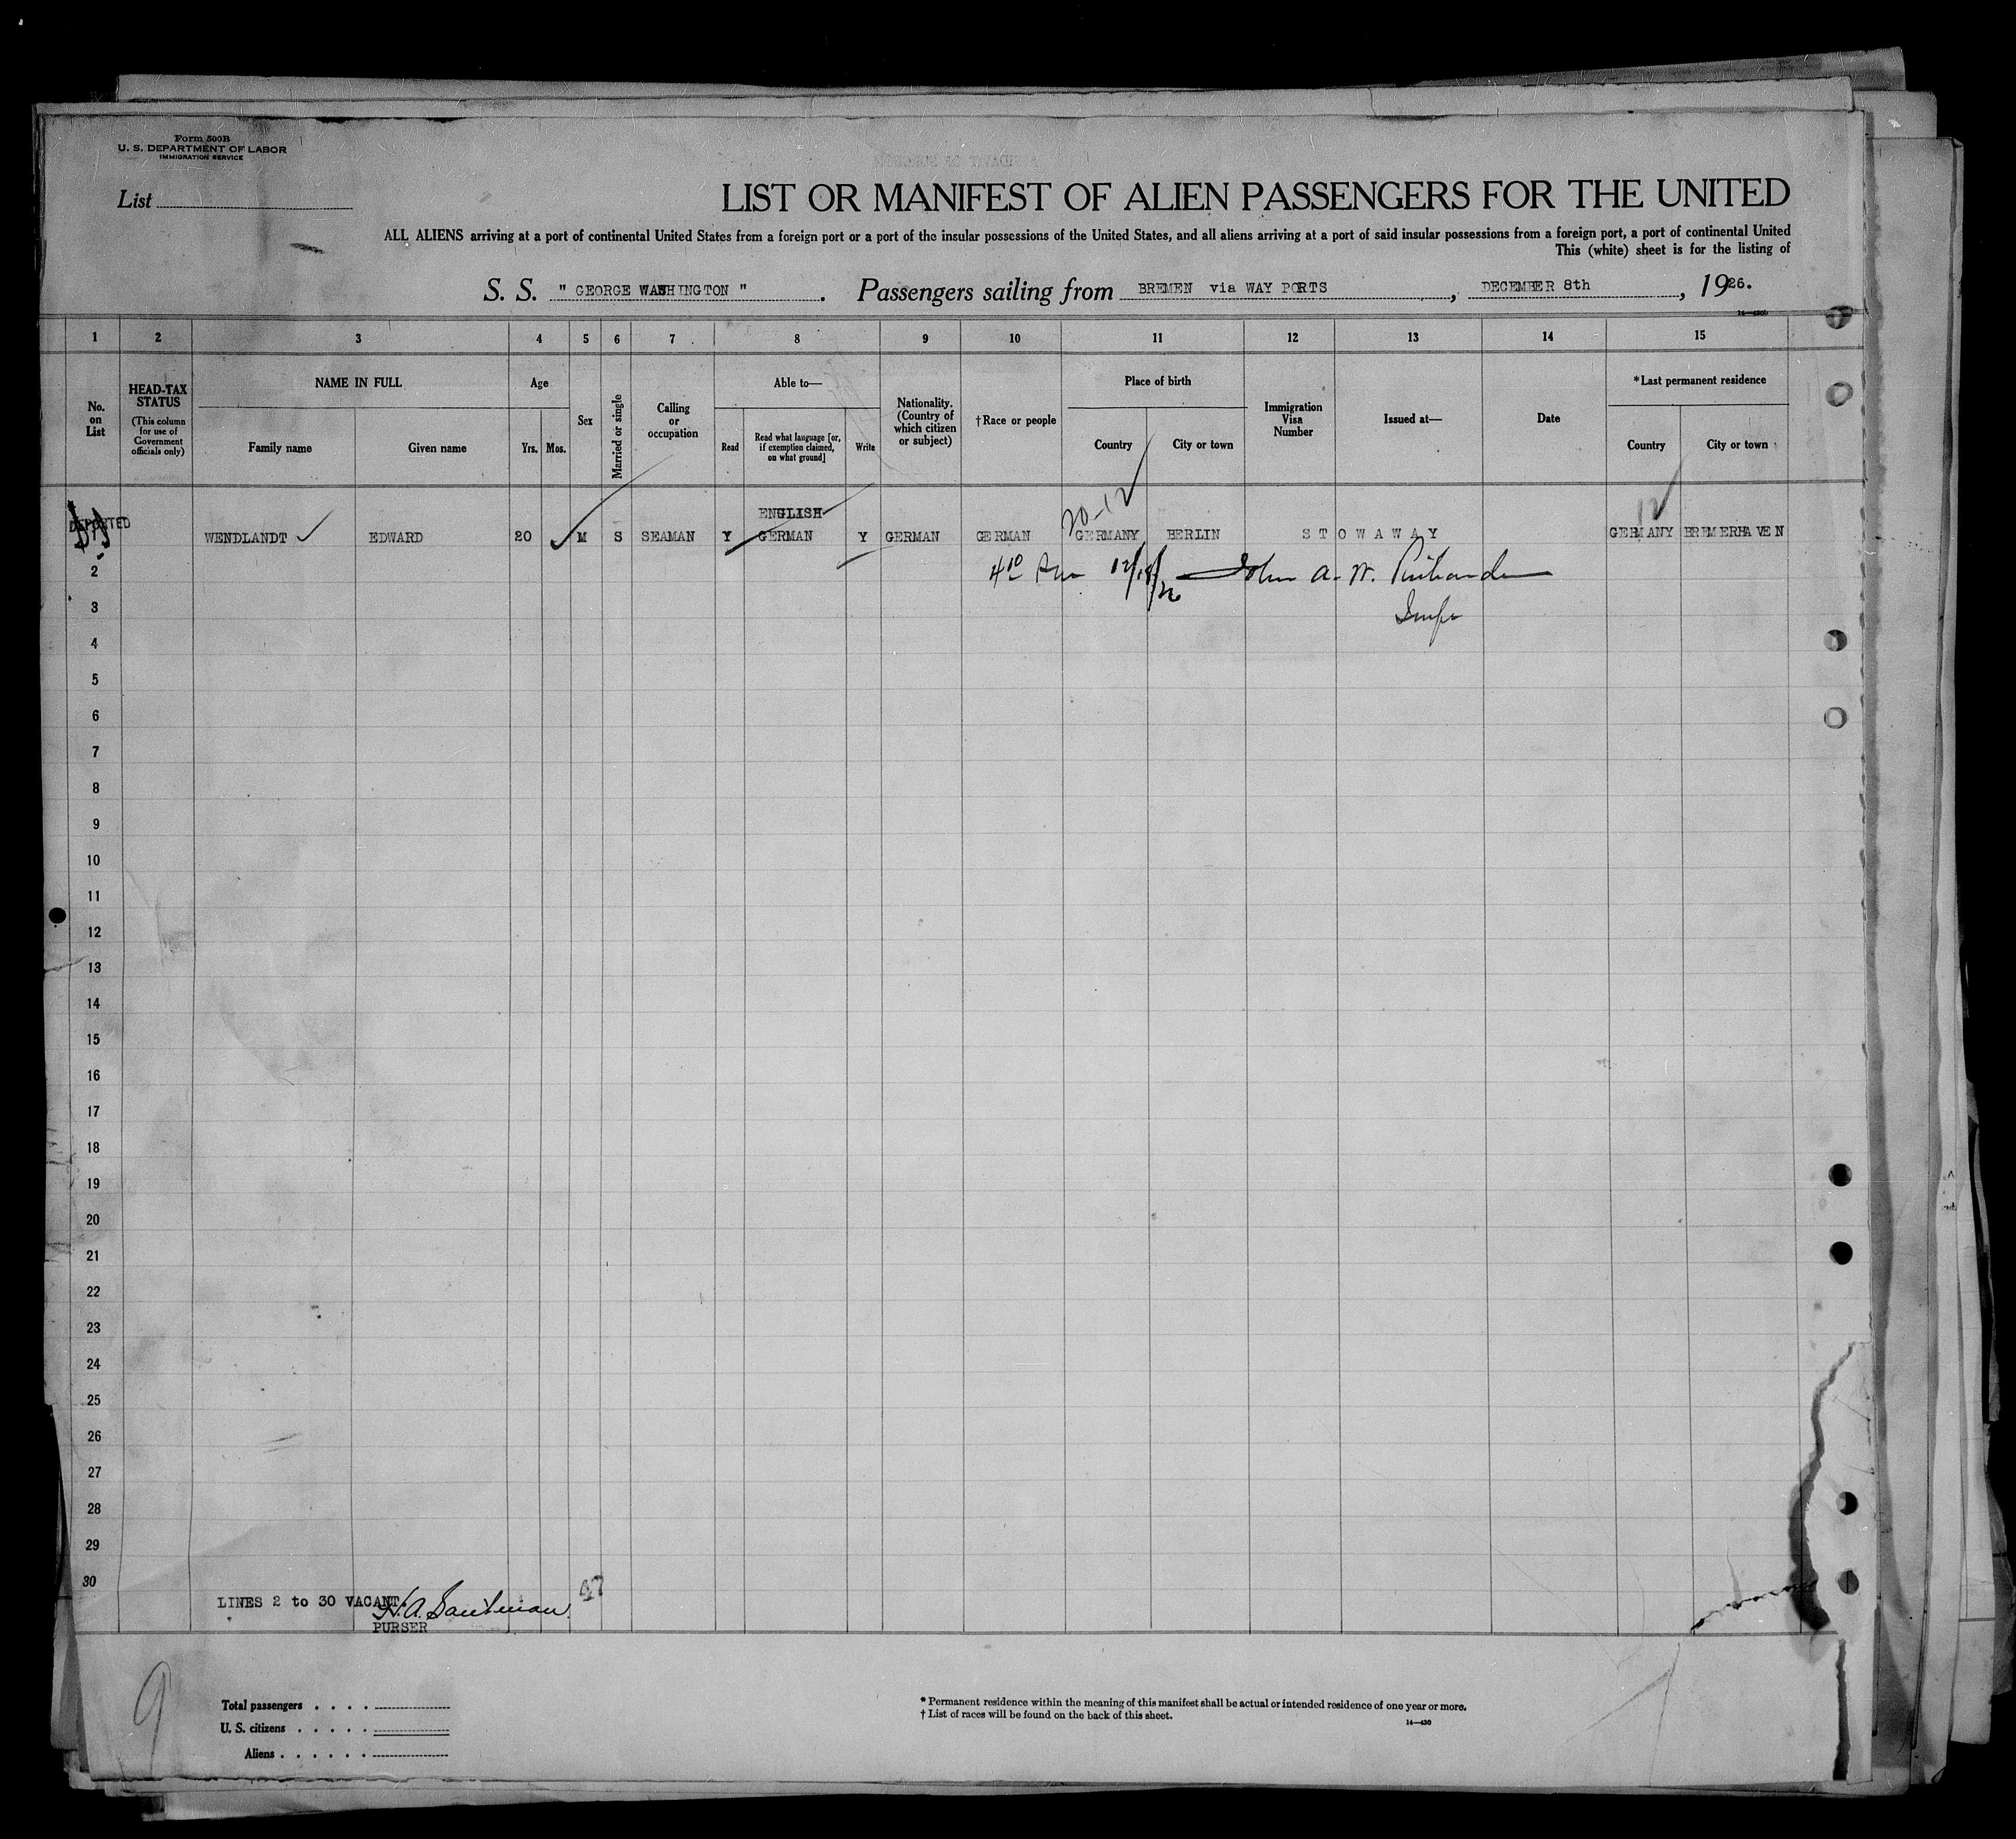 Form 500B
U. S. DEPARTMENT OF LABOR
IMMIGRATION SERVICE
List
LIST OR MANIFEST OF ALIEN PASSENGERS FOR THE UNITED
ALL ALIENS arriving at a port of continental United States from a foreign port or a port of the insular possessions of the United States, and all aliens arriving at a port of said insular possessions from a foreign port, a port of continental United
This (white) sheet is for the listing of
S. S. " GEORGE WASHINGTON " . Passengers sailing from BREMEN via WAY PORTS , DECEMBER 8th , 1926.
1 2 3 4 5 6 7 8 9 10 11 12 13 14 15
No. on List
HEAD-TAX STATUS
(This column for use of Government officials only)
NAME IN FULL
Family name Given name
Age
Yrs. Mos.
Sex
Married or single
Calling or occupation
Able to—
Read
Read what language [or, if exemption claimed, on what ground]
Write
Nationality. (Country of which citizen or subject)
†Race or people
Place of birth
Country City or town
Immigration Visa Number
Issued at—
Date
*Last permanent residence
Country City or town
20-12
12
ENGLISH
DEPORTED WENDLANDT EDWARD 20 M S SEAMAN Y GERMAN Y GERMAN GERMAN GERMANY BERLIN STOWAWAY GERMANY BREMERHAVEN
2 12/18/26 John A. W.
3
4
5
6
7
8
9
10
11
12
13
14
15
16
17
18
19
20
21
22
23
24
25
26
27
28
29
30
LINES 2 to 30 VACANT
47
PURSER
9
Total passengers . . . .
U. S. citizens . . . . .
Aliens . . . . . .
* Permanent residence within the meaning of this manifest shall be actual or intended residence of one year or more.
† List of races will be found on the back of this sheet.
14—430